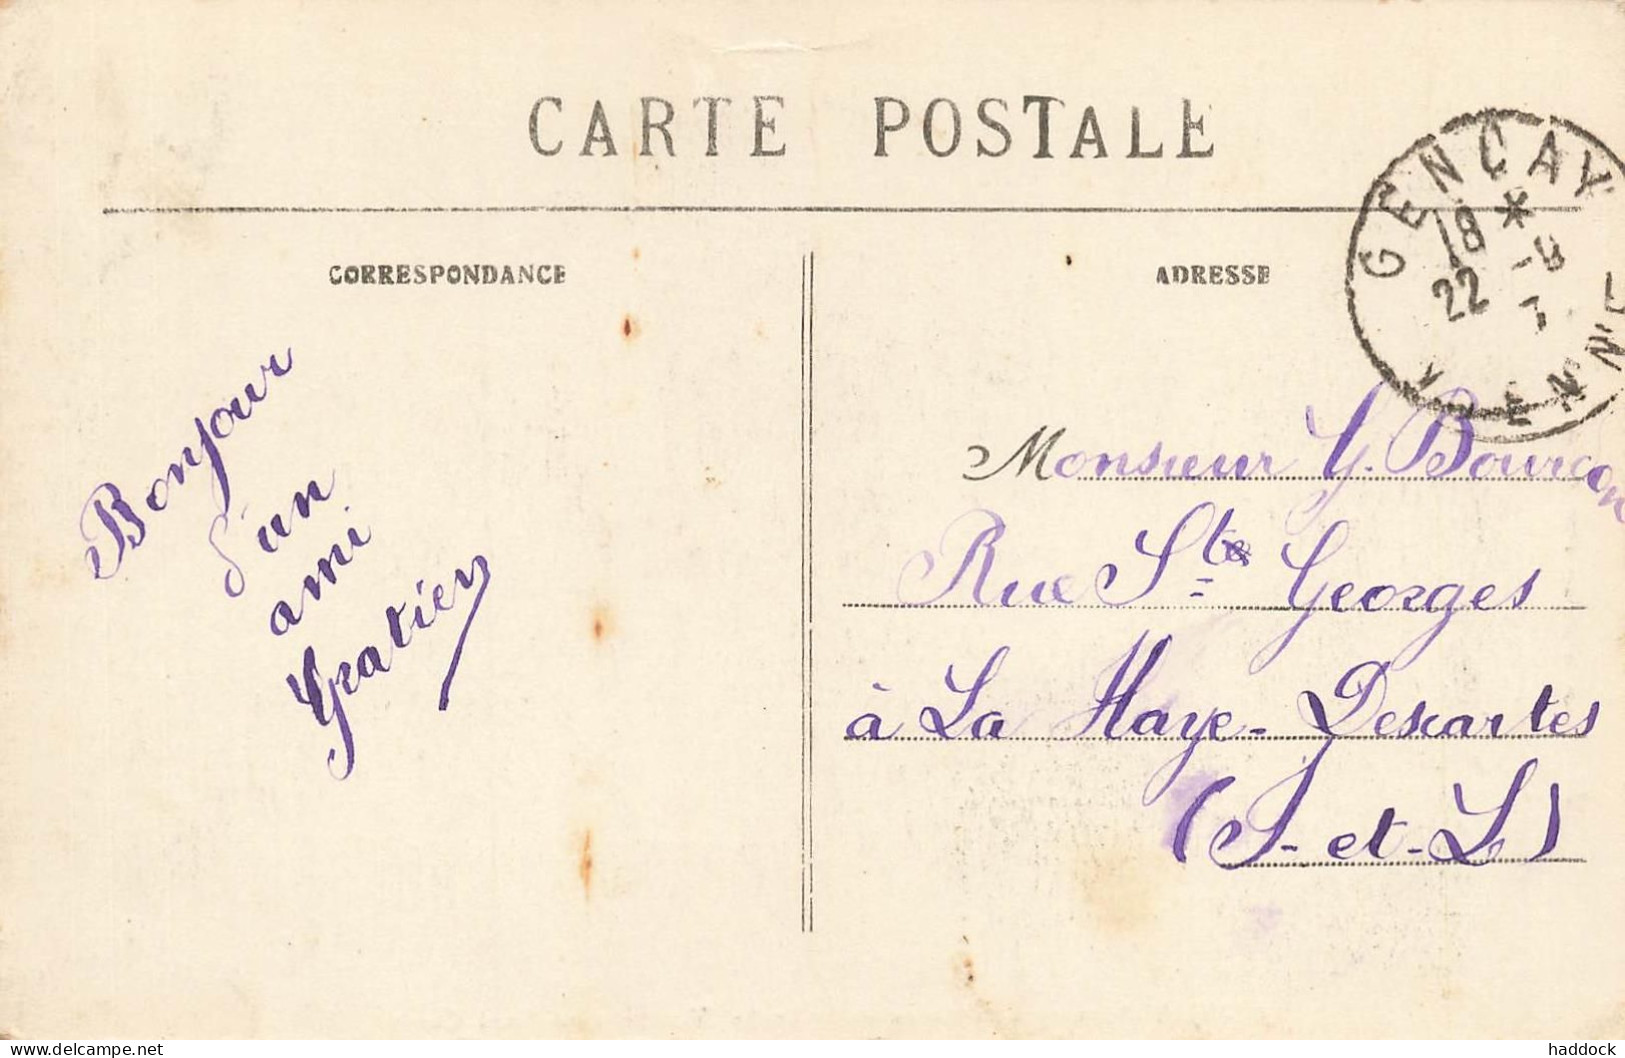 CARTE POSTALE
CORRESPONDANCE
Bonjour
d'un
ami
Gratien
ADRESSE
GENÇAY
18 *
22
VIENNE
Monsieur G. Bourcon
Rue Ste Georges
à La Haye-Descartes
(I-et-L)
www.delcampe.net
haddock